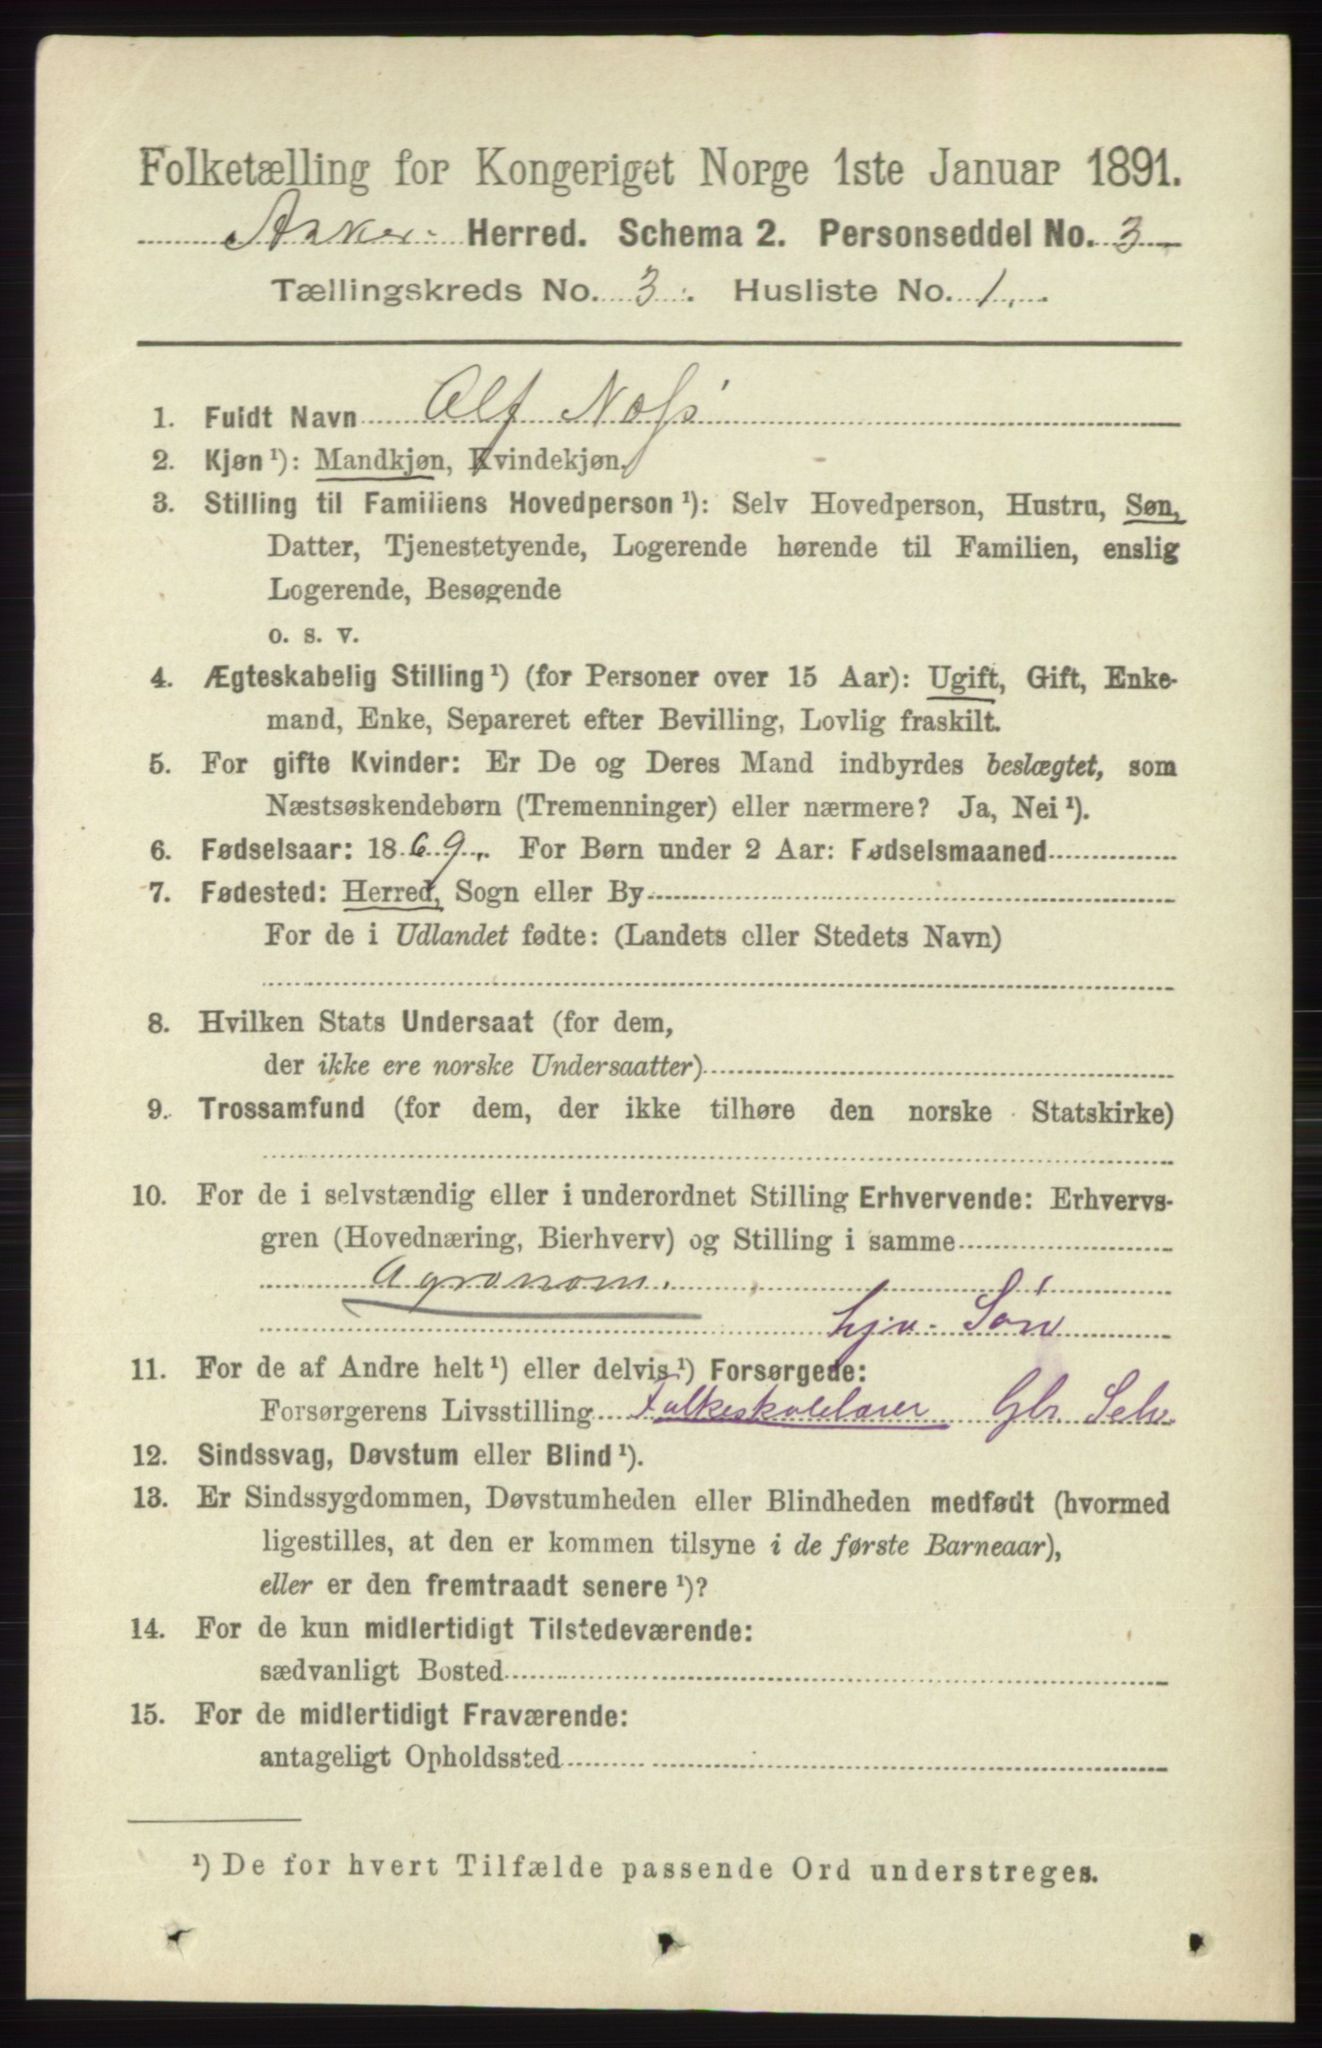 Folketælling for Kongeriget Norge 1ste Januar 1891.
Asker Herred. Schema 2. Personseddel No. 3
Tællingskreds No. 3. Husliste No. 1.
1. Fuldt Navn Alf Næss
2. Kjøn ¹): Mandkjøn, Kvindekjøn.
3. Stilling til Familiens Hovedperson ¹): Selv Hovedperson, Hustru, Søn,
Datter, Tjenestetyende, Logerende hørende til Familien, enslig
Logerende, Besøgende
o. s. v.
4. Ægteskabelig Stilling ¹) (for Personer over 15 Aar): Ugift, Gift, Enke-
mand, Enke, Separeret efter Bevilling, Lovlig fraskilt.
5. For gifte Kvinder: Er De og Deres Mand indbyrdes beslægtet, som
Næstsøskendebørn (Tremenninger) eller nærmere? Ja, Nei ¹).
6. Fødselsaar: 1869. For Børn under 2 Aar: Fødselsmaaned
7. Fødested: Herred, Sogn eller By
For de i Udlandet fødte: (Landets eller Stedets Navn)
8. Hvilken Stats Undersaat (for dem,
der ikke ere norske Undersaatter)
9. Trossamfund (for dem, der ikke tilhøre den norske Statskirke)
10. For de i selvstændig eller i underordnet Stilling Erhvervende: Erhvervs-
gren (Hovednæring, Bierhverv) og Stilling i samme
Agronom.
hjv. Søn
11. For de af Andre helt ¹) eller delvis ¹) Forsørgede:
Forsørgerens Livsstilling Folkeskolelærer Gbr. Selv.
12. Sindssvag, Døvstum eller Blind ¹).
13. Er Sindssygdommen, Døvstumheden eller Blindheden medfødt (hvormed
ligestilles, at den er kommen tilsyne i de første Barneaar),
eller er den fremtraadt senere ¹)?
14. For de kun midlertidigt Tilstedeværende:
sædvanligt Bosted
15. For de midlertidigt Fraværende:
antageligt Opholdssted
¹) De for hvert Tilfælde passende Ord understreges.